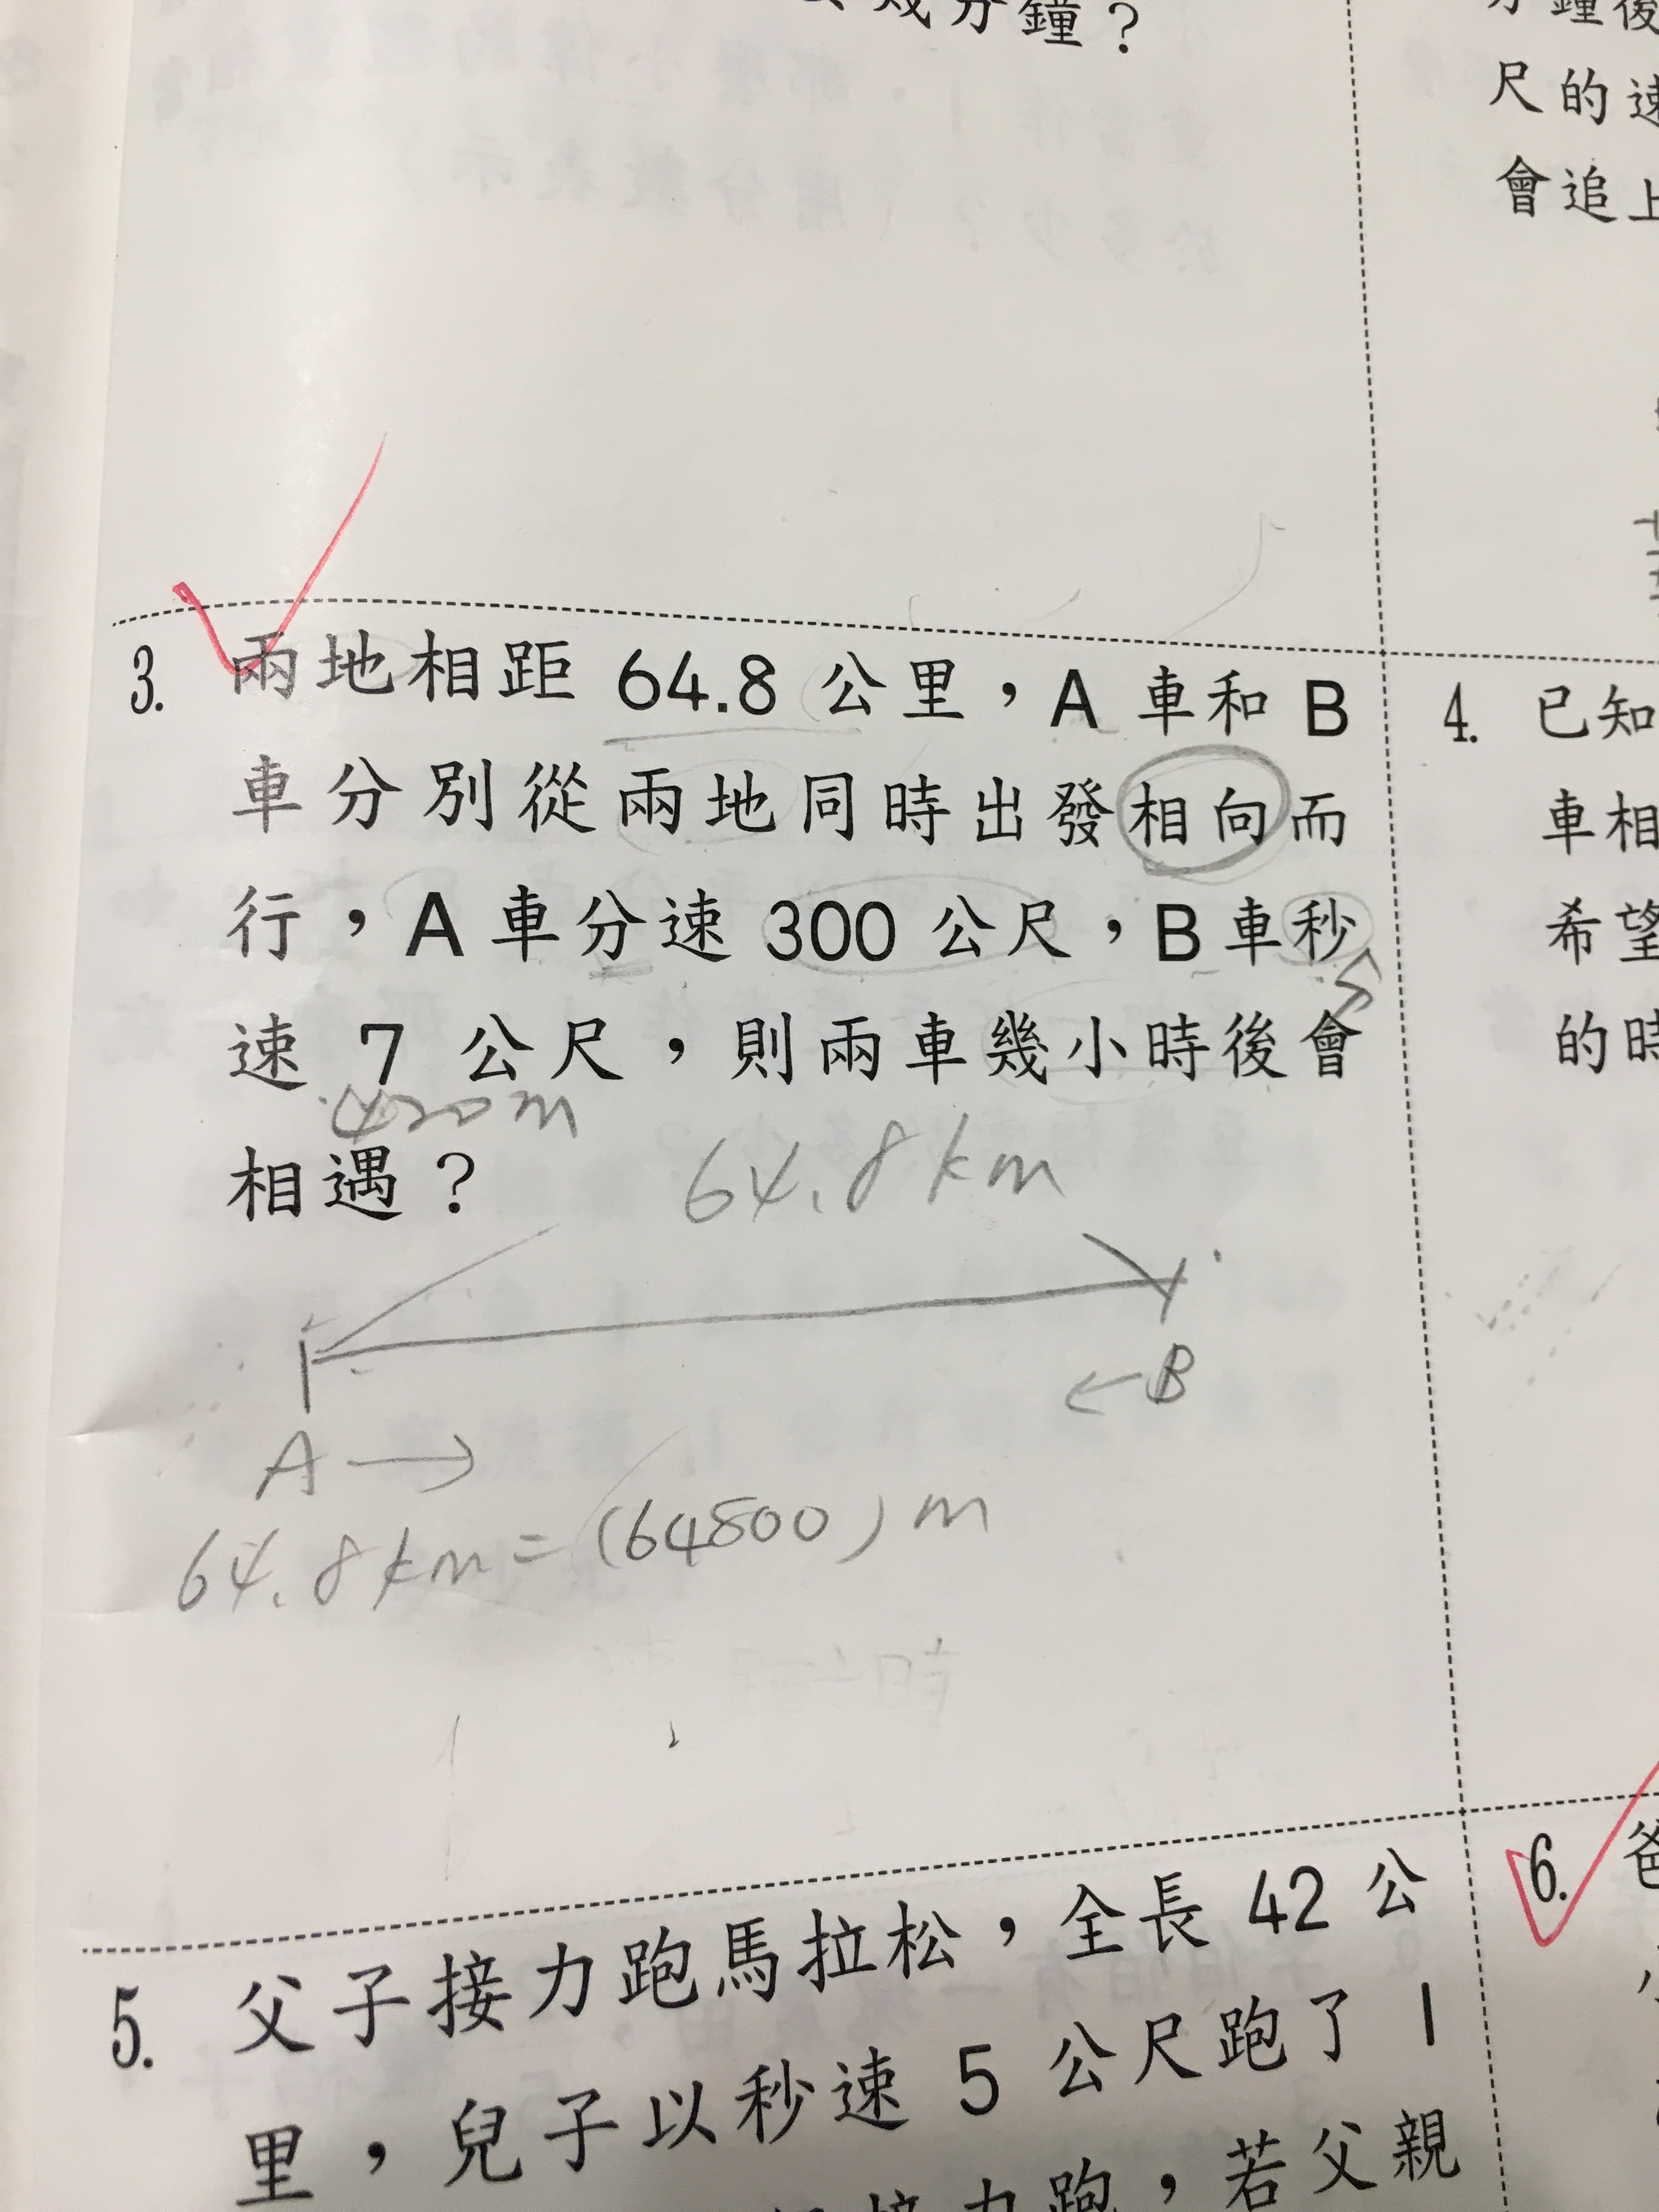 幾分鐘？
分鐘後
尺的速
會追上
3. 兩地相距 64.8 公里，A 車和 B
車分別從兩地同時出發相向而
行，A 車分速 300 公尺，B 車秒
速 7 公尺，則兩車幾小時後會
420m
相遇？
64.8km
B
A
64.8km=(64800)m
4. 已知
車相
希望
的時
5. 父子接力跑馬拉松，全長 42 公
里，兒子以秒速 5 公尺跑了 1
接力跑，若父親
6. 爸